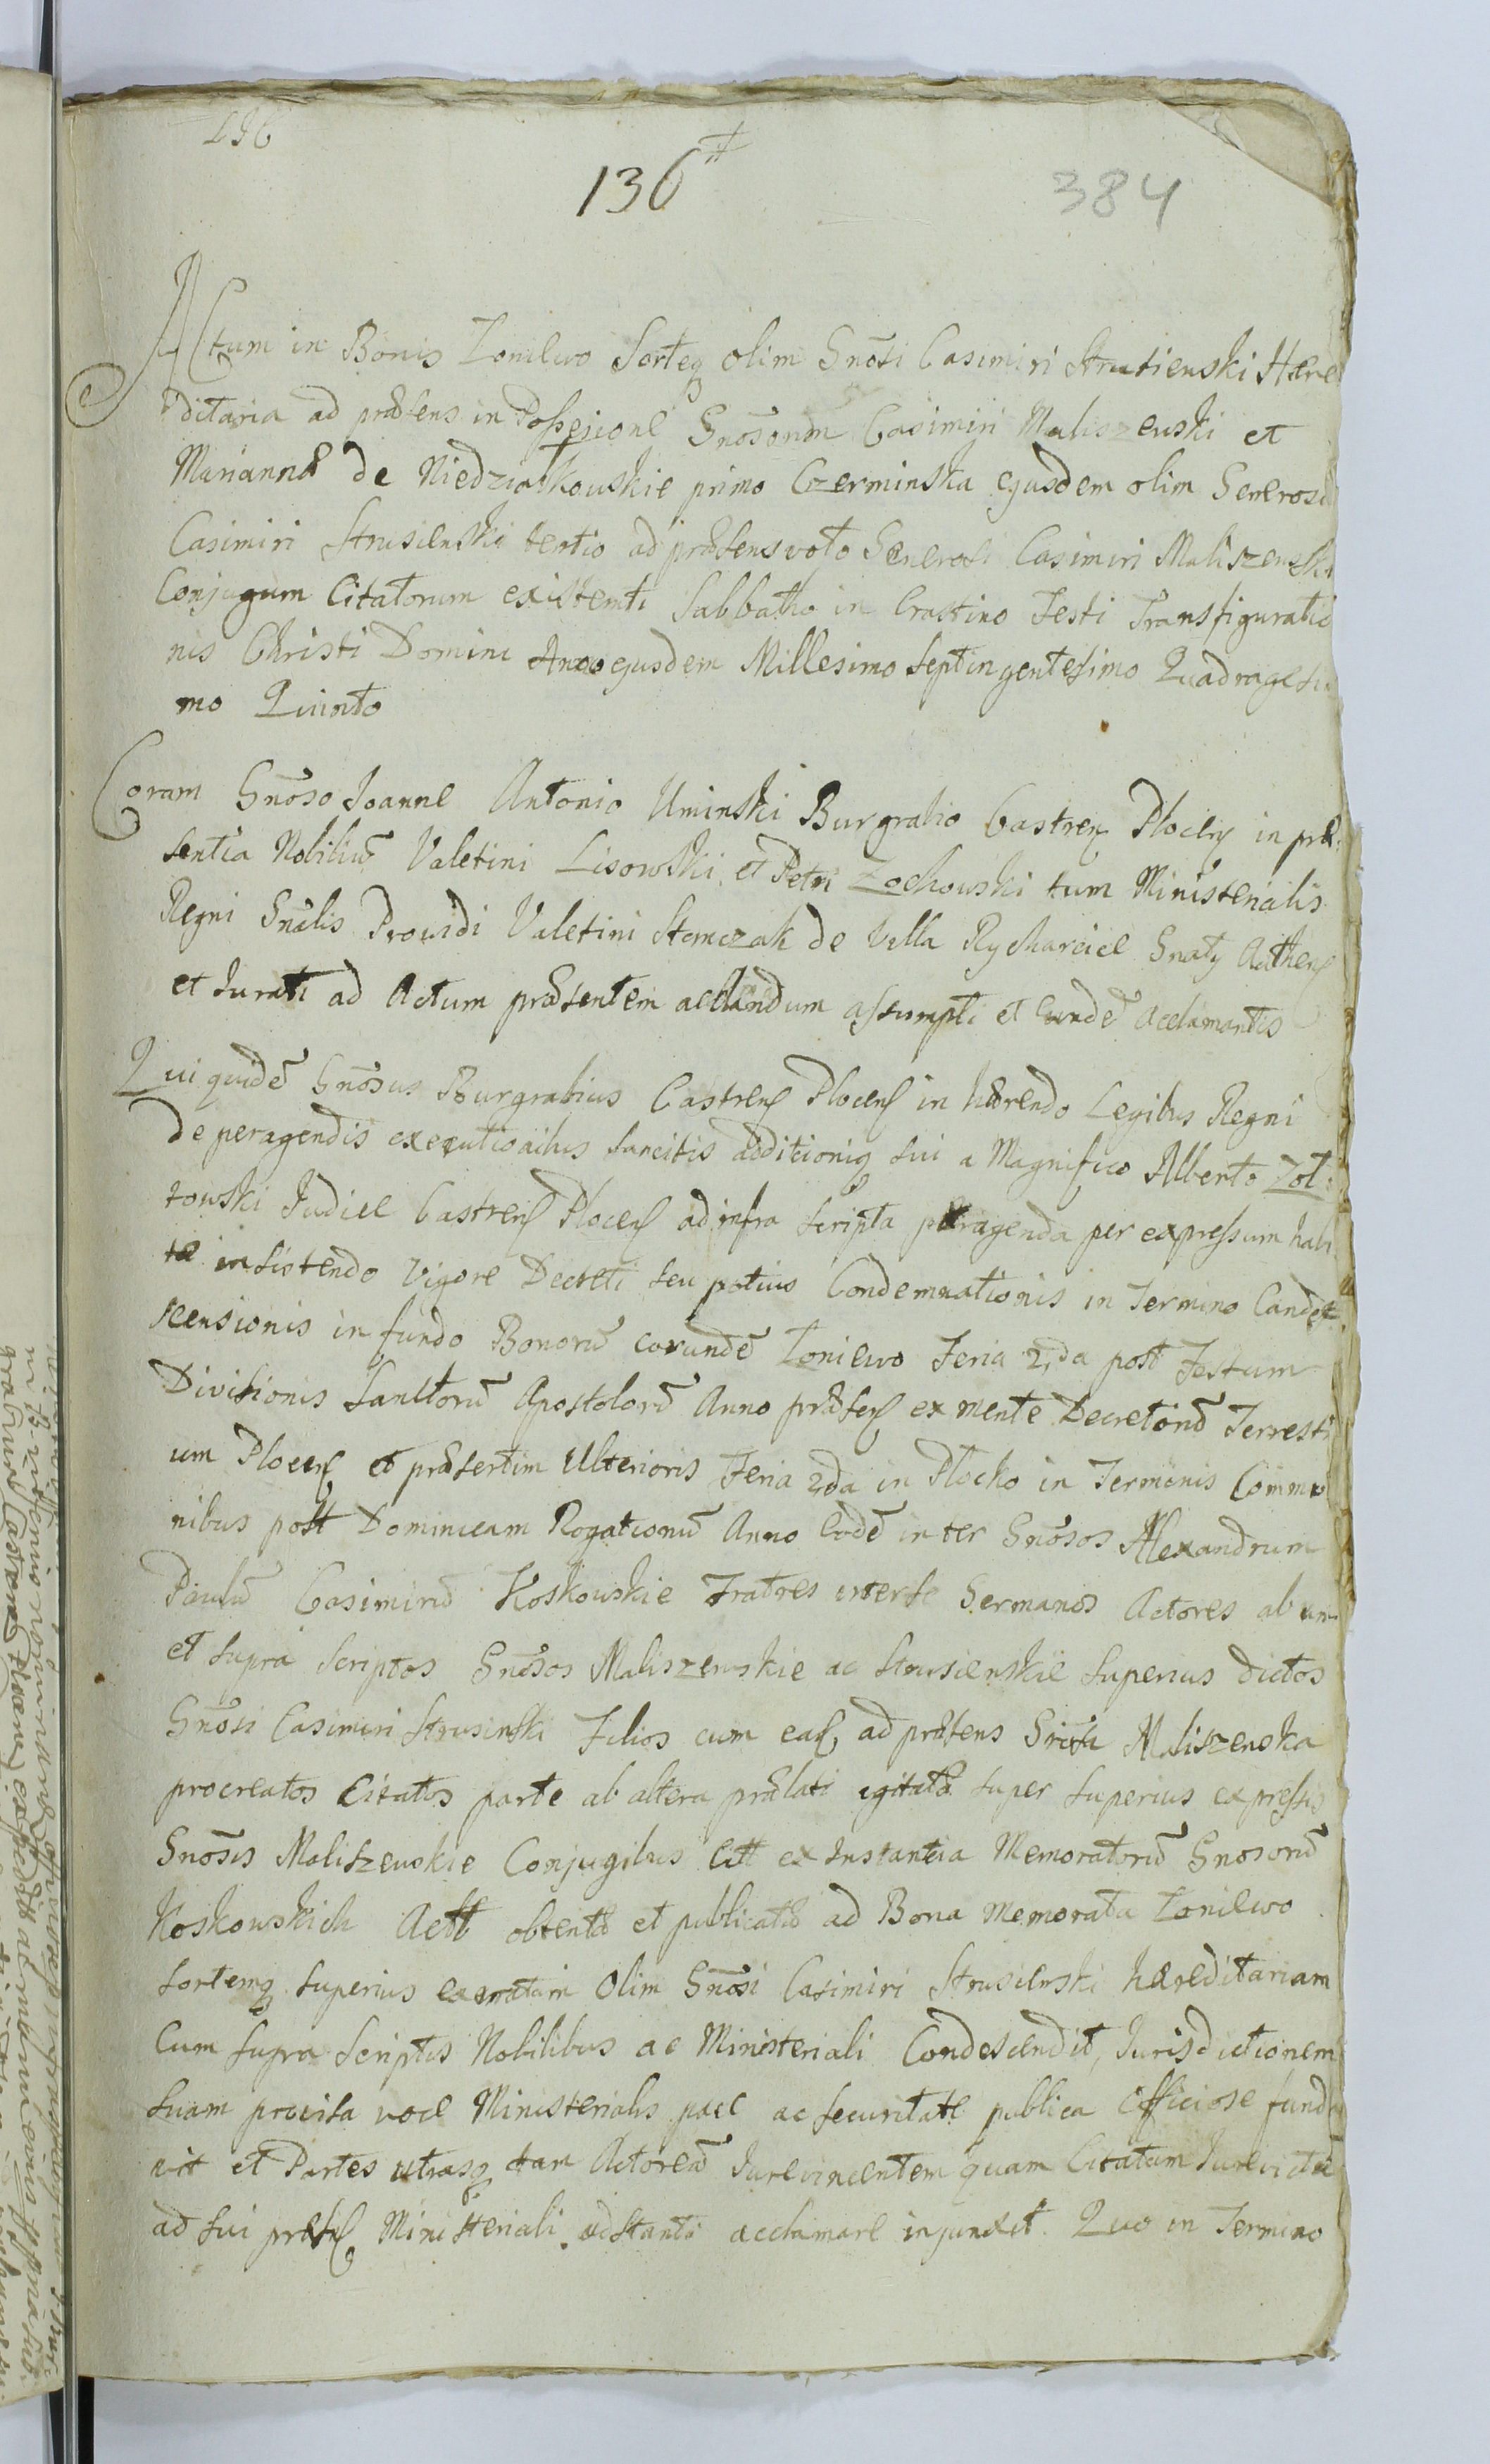 136
136#
384
Actum in Bonis Loniewo Sorteq olim Gnosi Casimiri Strusienski Hære
ditaria ad præsens in Possesione Gnosorum Casimiri Maliszewski et
Marianna de Niedziałkowskie primo Czerminska ejusdem olim Generosi
Casimiri Strusienski tertio ad præsens voto Generosi Casimiri Maliszewski
Conjugum Citatorum existenti Sabbatho in Crastino Festi Transfiguratio
nis Christi Domini Anno ejusdem Millesimo Septingentesimo Quadragesi
mo Quinto
Coram Gnōso Joanne Antonio Uminski Burgrabio Castren Plocen in præ:
sentia Nobiliū Valetini Lisowski et Petri Zochowski tum Ministerialis
Regni Gnālis Providi Valetini Stemczak de Villa Rycharcice Gnatq Authen
et Jurati ad Actum præsentem acclandum assumpti et Eundē Acclamantis
Qui quidē Gnōsus Burgrabius Castren Plocen in hærendo Legibus Regni
De peragendis executionibus sancitis additioniq sui a Magnifico Alberto Zol:
towski Judice Castren Plocen ad infra scripta peragenda per expressum habi
tæ insistendo vigore Decreti seu potius Condemnationis in Termino Condes
scensionis in fundo Bonorū eorundē Loniewo Feria 2da post Festum
Divisionis Sanctorū Apostolorū Anno præsen ex mente Decretorū Terrestri
um Plocen et præsertim Ulterioris Feria 2da in Plocko in Terminis Commu
nibus post Dominicam Rogationū Anno Eodē inter Gnōsos Alexandrum
Paulū Casimirū Koskowskie Fratres inter se Germanos Actores ab un
et supra Scriptos Gnōsos Maliszewskie ac Strusienskie superius dictos
Gnōsi Casimiri Strusinski Filios cum ead ad præsens Gnōsa Maliszewska
procreatos Citatos parte ab altera prælati agitatæ super superius expressis
Gnōsis Maliszewskie Conjugibus Citt ex Instantia Memoratorū Gnosorū
Koskowskich Actt obtentæ et publicatæ ad Bona Memorata Loniewo
sortemq superius exaratam Olim Gnōsi Casimiri Strusienski hæreditariam
Cum supra Scriptis Nobilibus ac Ministeriali Condescendit, Jurisdictionem
suam prævisa voce Ministerialis pace ac securitate publica Officiose funda
vit et Partes utrasq tam Actoreā Jurevincentem quam Citatam Jurevictā
ad sui præsen Ministeriali adstanti acclamare injunxit. Quo in Termino